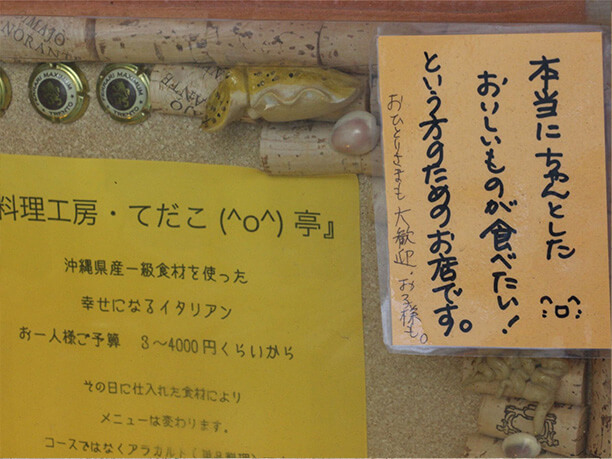 本当にちゃんとした
おいしいものが食べたい!
^o^
という方のためのお店です。
おひとりさまも大歓迎・お子様も。
料理工房・てだこ(^o^)亭』
沖縄県産一級食材を使った
幸せになるイタリアン
お一人様ご予算 3〜4000円くらいから
その日に仕入れた食材により
メニューは変わります。
コースではなくアラカルト(